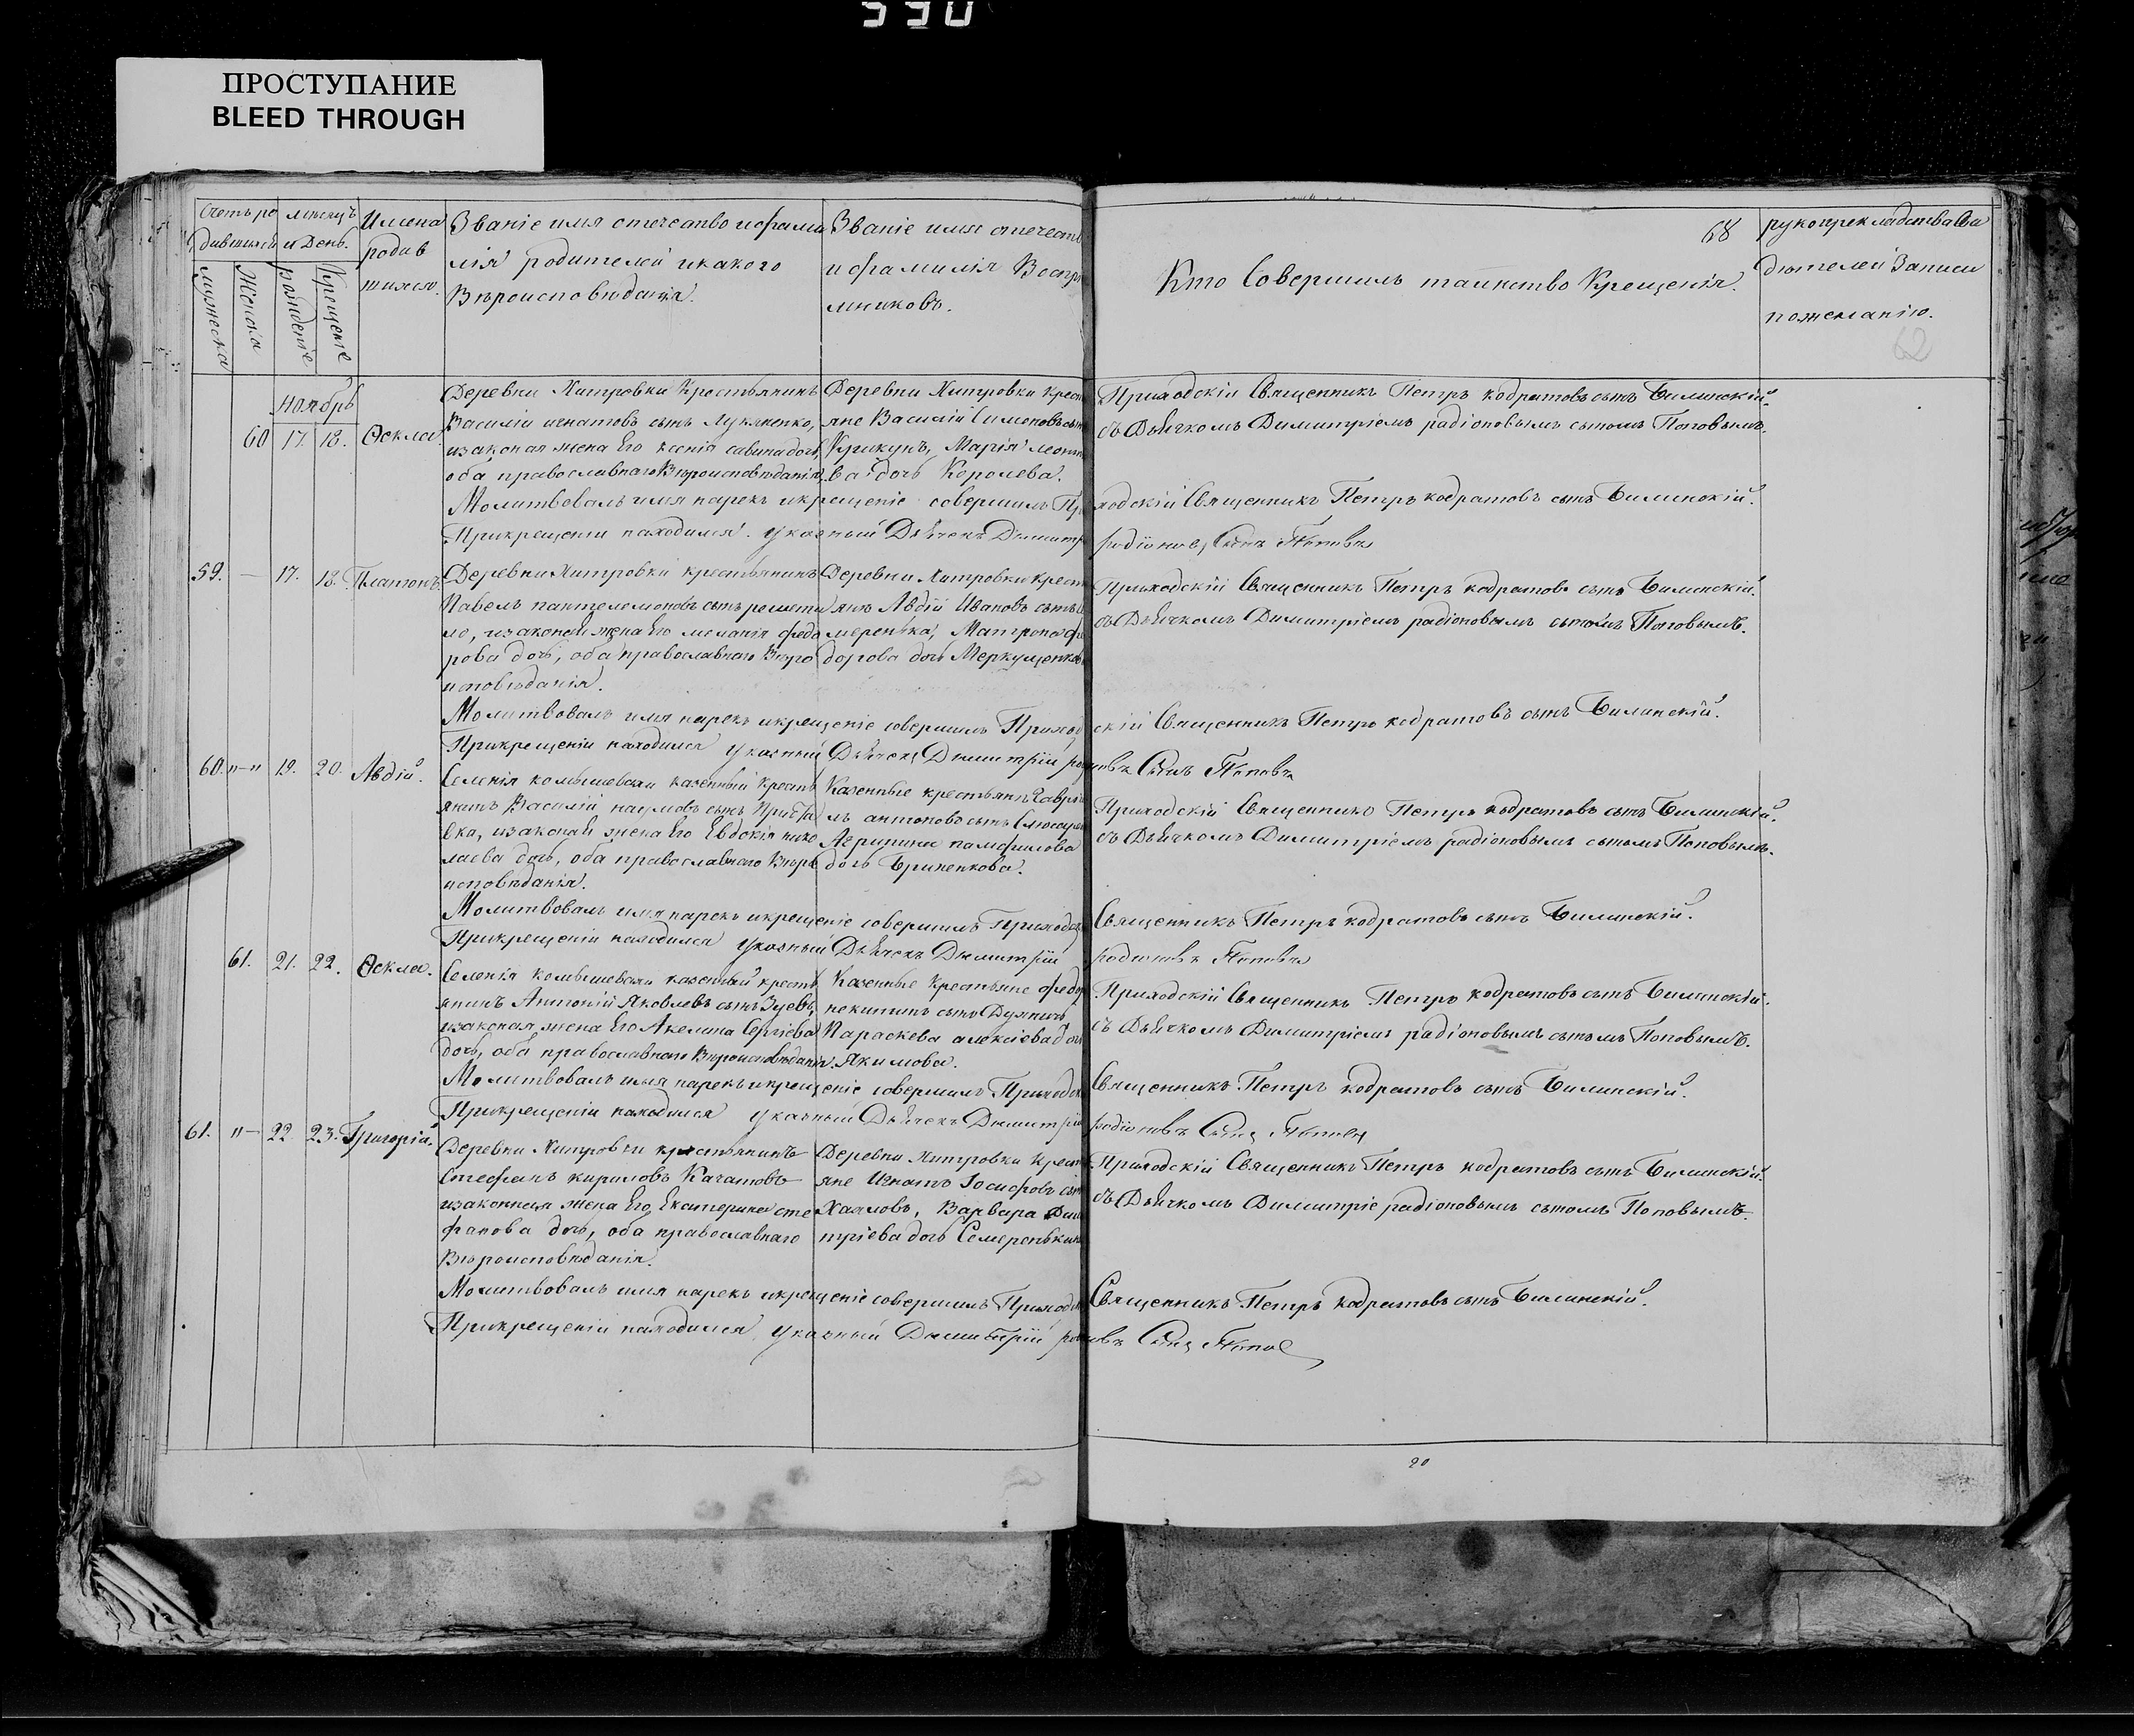 590
ПРОСТУПАНИЕ
BLEED THROUGH
Счетъ ро
дившихся
мужеска
Женска
мѣсяцъ
и День.
рожденіе
Крещеніе
Имена
родив
шихся.
Званіе имя отечество и фами
лія родителей и какого
Вѣроисповѣданія.
Званіе имя отечеств
и фамилія Воспрі
мниковъ.
68
Кто Совершилъ таинство Крещенія.
рукоприкладства Сви
дѣтелей Записи
пожеланію.
62
Ноябрь
60 17. 18. Ѳекла
Деревни Хитровки Крестьянинъ
Василій игнатовъ сынъ Лукяненко,
изаконая жена Его ксенія савина дочь,
оба православнаго Вѣроисповѣданія,
Деревни Хитровки крес
яне Василій Симоновъ сын
Крикунъ, Марія леонт
ва дочь Королева.
Приходскій Священникъ Петръ кодратовъ сынъ Билинскій.
съ Дьячкомъ Димитріемъ радіоновымъ сыномъ Поповымъ.
Молитвовалъ имя нарекъ икрещеніе совершилъ Приходскій Священникъ Петръ кодратовъ сынъ Билинскій.
Прикрещеніи находился указный Дьячекъ Димитр родіонов Сынъ Поповъ
59. — 17. 18. Платонъ.
Деревни Хитровки крестьянинъ
Павелъ пантелемоновъ сынъ решети
ло, изаконай жена Его меланія федо
рова дочь, оба православнаго Вѣро
исповѣданія.
Деревни Хитровки крест
яне Авдій Ивановъ сынъ
меренька, Матрона фе
дорова дочь Меркущенков
Приходскій Священникъ Петръ кодратовъ сынъ Билинскій.
съ Дьячкомъ Димитріемъ радіоновымъ сыномъ Поповымъ.
Молитвовалъ имя нарекъ икрещеніе совершилъ Приходскій Священникъ Петръ кодратовъ сынъ Билинскій.
Прикрещеніи находился указный Дьячекъ Димитрій ро новъ Сынъ Поповъ
60. "—" 19. 20. Авдій.
Селенія комышевахи казенный Кресть
янинъ Василій наумовъ сынъ
вка, изаконая жена Его Евдокія нико
лаева дочь, оба православнаго Вѣро
исповѣданія.
Казенные крестьяне Гаврі
лъ антоновъ сынъ Слюсаре
Агрипина памфилова
дочь Гриненкова.
Приходскій Священникъ Петръ кодратовъ сынъ Билинскій.
съ Дьячкомъ Димитріемъ радіоновымъ сыномъ Поповымъ.
Молитвовалъ имя нарекъ икрещеніе совершилъ Приходск Священникъ Петръ кодратовъ сынъ Билинскій.
Прикрещеніи находился указный Дьячекъ Димитрій родіоновъ Поповъ
61. 21. 22. Ѳекла.
Селенія комышевахи казенный кресть
янинъ Антоній Яковлевъ сынъ Зуевъ,
изаконая жена Его Акелина Сергіева
дочь, оба православнаго Вѣроисповѣданія.
Казенные Крестьяне федор
никитинъ сынъ Дуяничъ
Параскева алексіева доч
Якимова.
Приходскій Священникъ Петръ кодратовъ сынъ Билинскій.
съ Дьячкомъ Димитріемъ радіоновымъ сыномъ Поповымъ.
Молитвовалъ имя нарекъ икрещеніе совершилъ Приходск Священникъ Петръ кодратовъ сынъ Билинскій.
Прикрещеніи находился указный Дьячекъ Димитрій родіоновъ Сынъ Поповъ
61. "— 22. 23. Григорій.
Деревни Хитровки крестьянинъ
Стефанъ кириловъ Качановъ
изаконная жена Его Екатерина сте
фанова дочь, оба православнаго
Вѣроисповѣданія.
Деревни Хитровки Крест
яне Игнатъ Іосифовъ сын
Хаяловъ, Варвара Дими
тріева дочь Семеренькин
Приходскій Священникъ Петръ кодратовъ сынъ Билинскій.
съ Дьячкомъ Димитріе радіоновымъ сыномъ Поповымъ.
Молитвовалъ имя нарекъ икрещеніе совершилъ Приходск Священникъ Петръ кодратовъ сынъ Билинскій.
Прикрещеніи находился указный Димитрій ро новъ Сынъ Попов
20